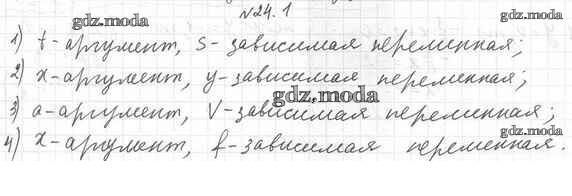 №24.1
gdz.moda
gdz.moda
1) t - аргумент, s - зависимая переменная;
2) x - аргумент, y - зависимая переменная;
gdz.moda
gdz.moda
3) a - аргумент, V - зависимая переменная;
4) x - аргумент, f - зависимая переменная.
gdz.moda
gdz.moda